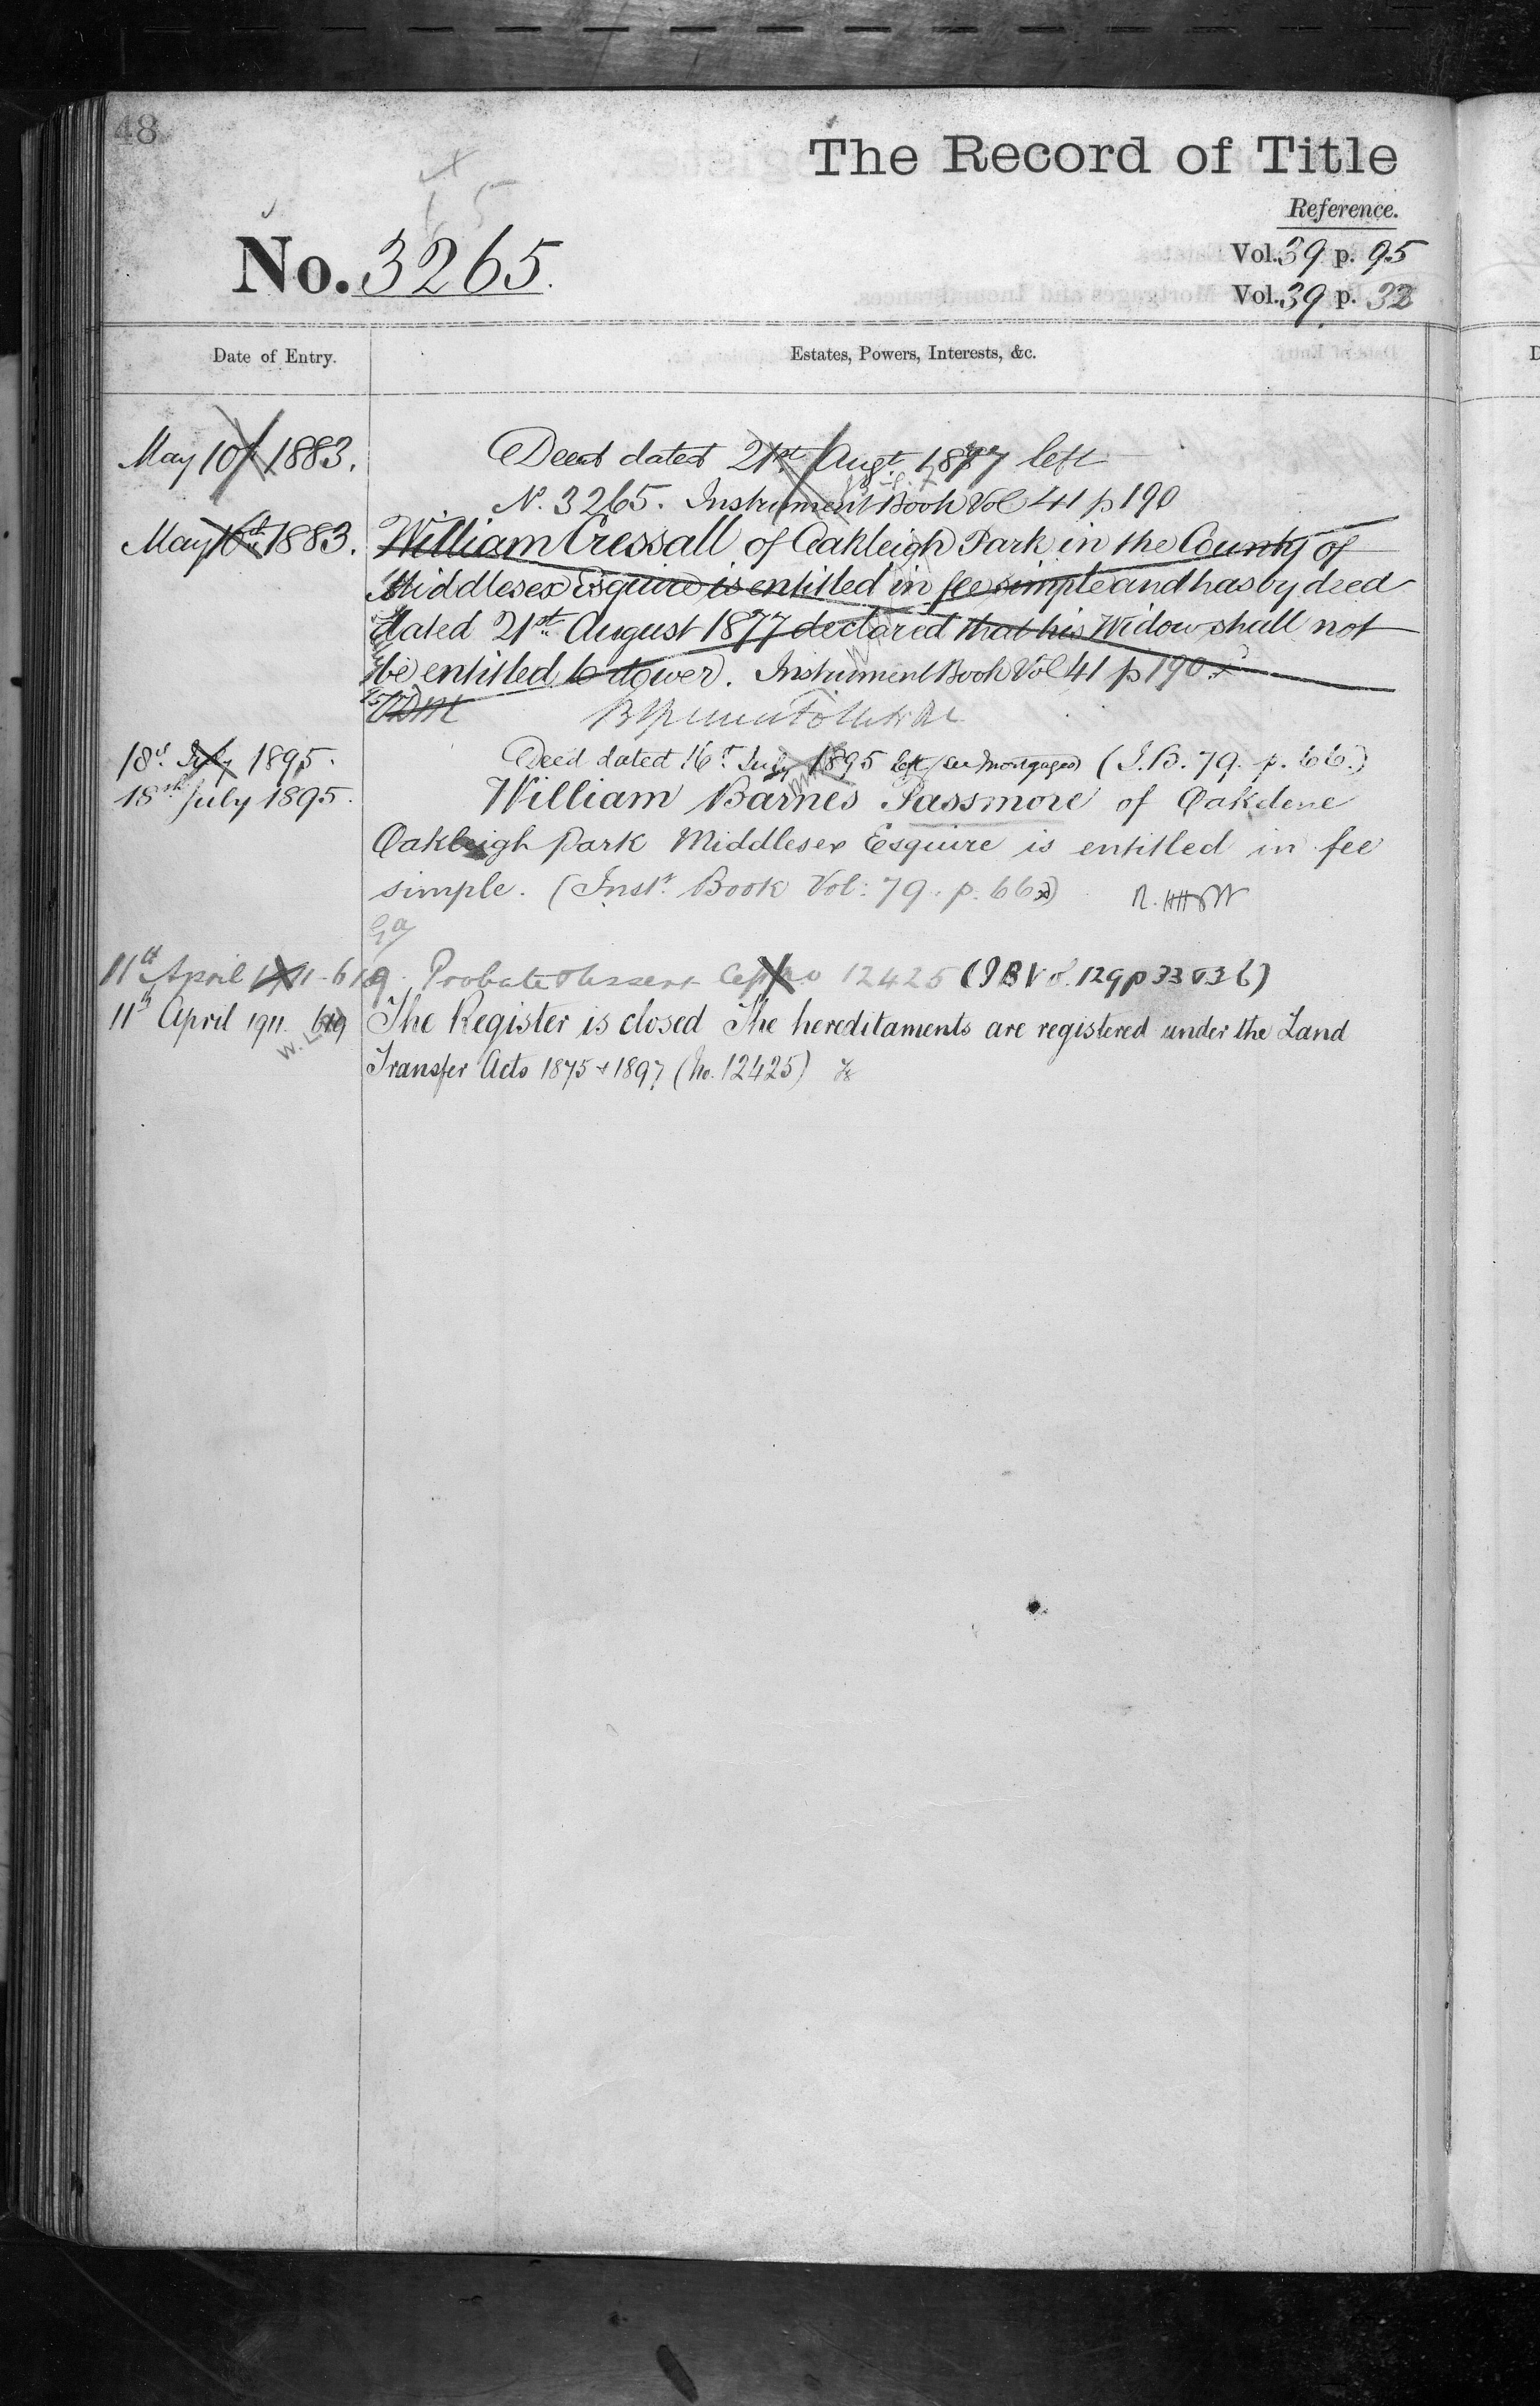 48
The Record of Title
Reference.
No. 3265.
Vol. 39 p. 95
Vol. 39 p. 32
Date of Entry.
Estates, Powers, Interests, &c.
May 10th 1883.
Deed dated 21st Augt. 1877 left
No. 3265. Instrument Book Vol 41 p 190
May 10th 1883.
William Cressall of Oakleigh Park in the County of
Middlesex Esquire is entitled in fee simple and has by deed
dated 21st August 1877 declared that his Widow shall not
be entitled to dower. Instrument Book Vol 41 p 190.
18th July 1895.
Deed dated 16th July 1895 left (see Mortgages) (I.B. 79. p. 66.)
18th July 1895.
William Barnes Passmore of Oakdene
Oakleigh Park Middlesex Esquire is entitled in fee
simple. (Inst. Book Vol: 79. p. 66)
11th April 1911 - 619. Probate 12425 (IB Vol. 129 p 33 & 36)
11th April 1911. 619
The Register is closed The hereditaments are registered under the Land
W.L.
Transfer Acts 1875 & 1897 (No. 12425)